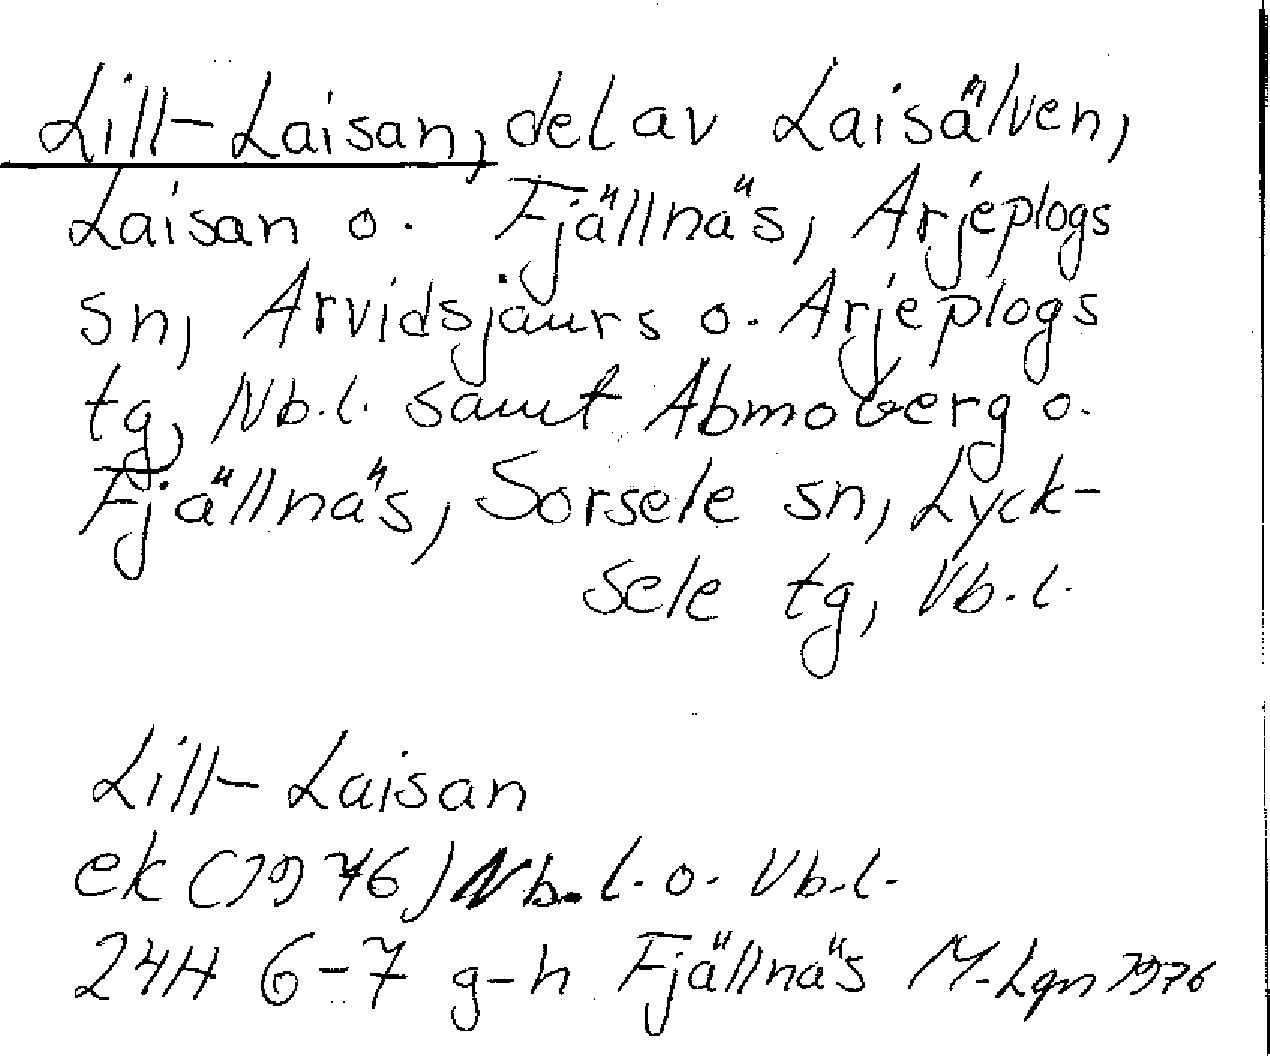 Lill-Laisan, del av Laisälven,
Laisan o. Fjällnäs, Arjeplogs
sn, Arvidsjaurs o. Arjeplogs
tg, Nb.l. samt Abmoberg o.
Fjällnäs, Sorsele sn, Lyck-
sele tg, Vb.l.
Lill-Laisan
ek (1976) Nb.l. o. Vb.l.
24H 6-7 g-h Fjällnäs M-Lgn 1976